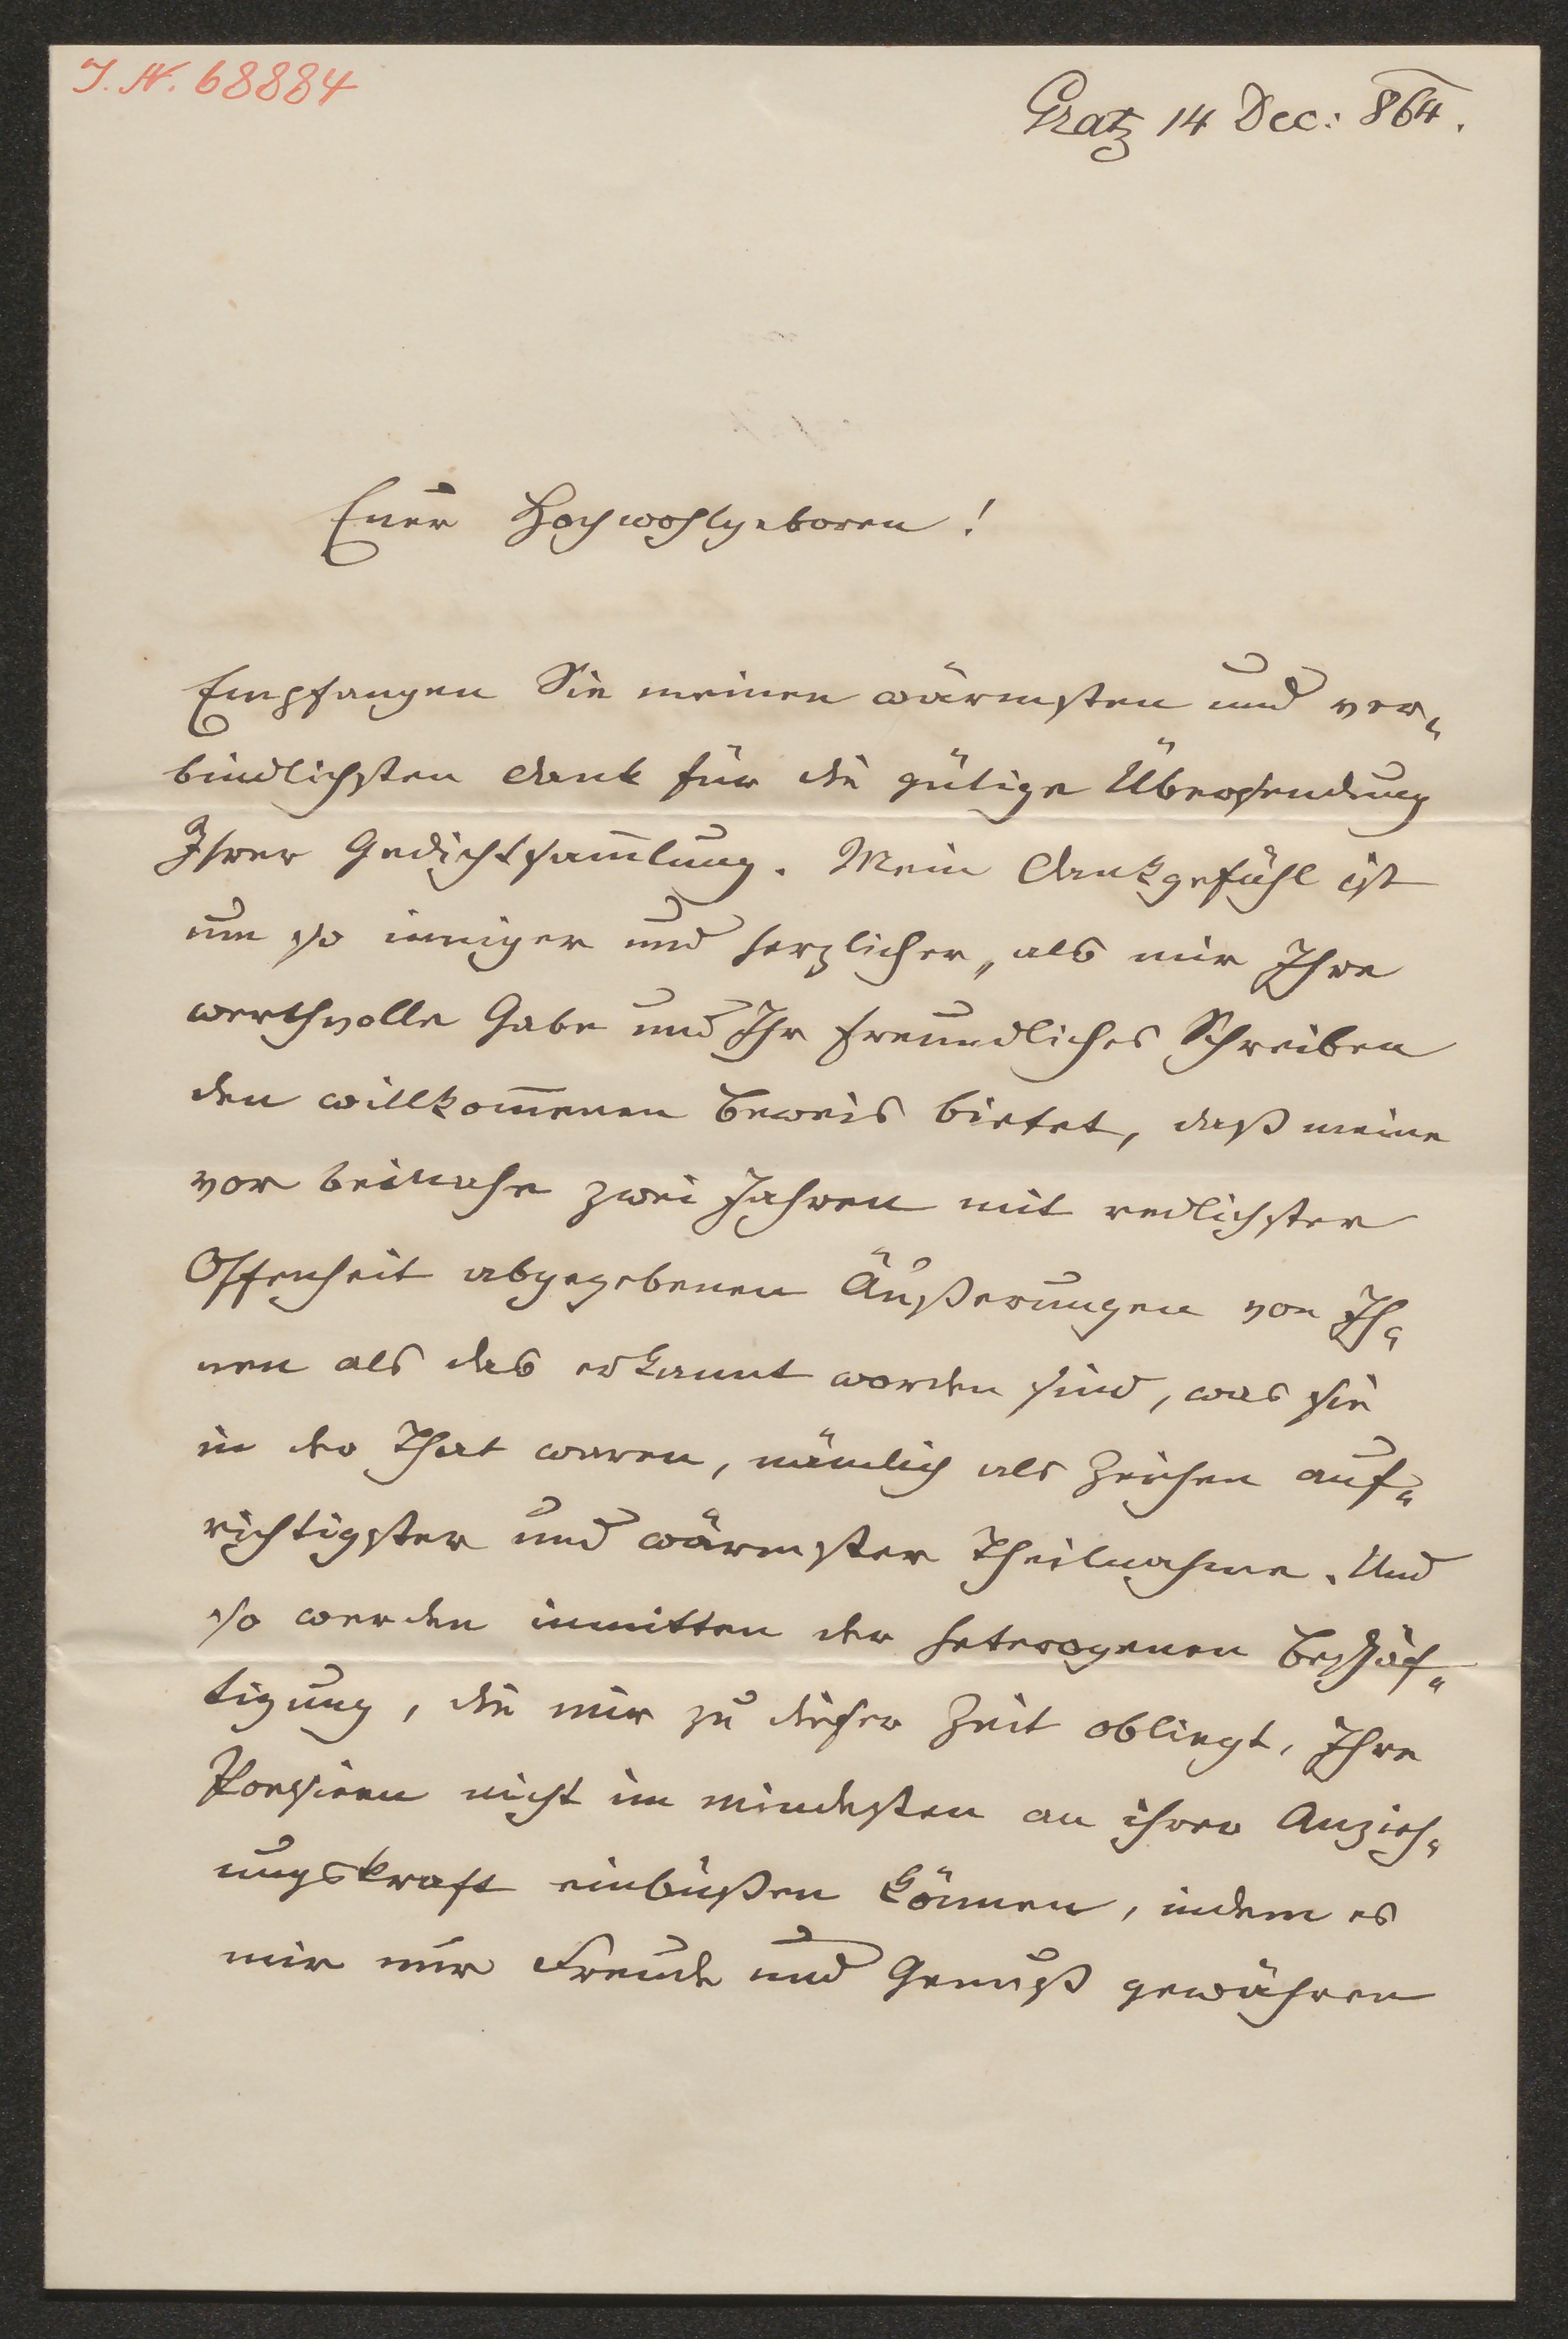 I. N. 68884
Gratz 14 Dec: 864.
Euer Hochwohlgeboren!
Empfangen Sie meinen wärmsten und ver-
bindlichsten Dank für die gütige Übersendung
Ihrer Gedichtsam̅lung. Mein Dankgefühl ist
um so inniger und herzlicher, als mir Ihre
werthvolle Gabe und Ihr freundliches Schreiben
den willkom̅enen Beweis bietet, daß meine
vor beinahe zwei Jahren mit redlichster
Offenheit abgegebenen Äußerungen von Ih-
nen als das erkannt worden sind, was sie
in der That waren, nämlich als Zeichen auf-
richtigster und wärmster Theilnahme. Und
so werden inmitten der heterogenen Beschäf-
tigung, die mir zu dieser Zeit obliegt, Ihre
Poesieen nicht im mindesten an ihrer Anzieh-
ungskraft einbüßen können, indem es
mir nur Freude und Genuß gewähren